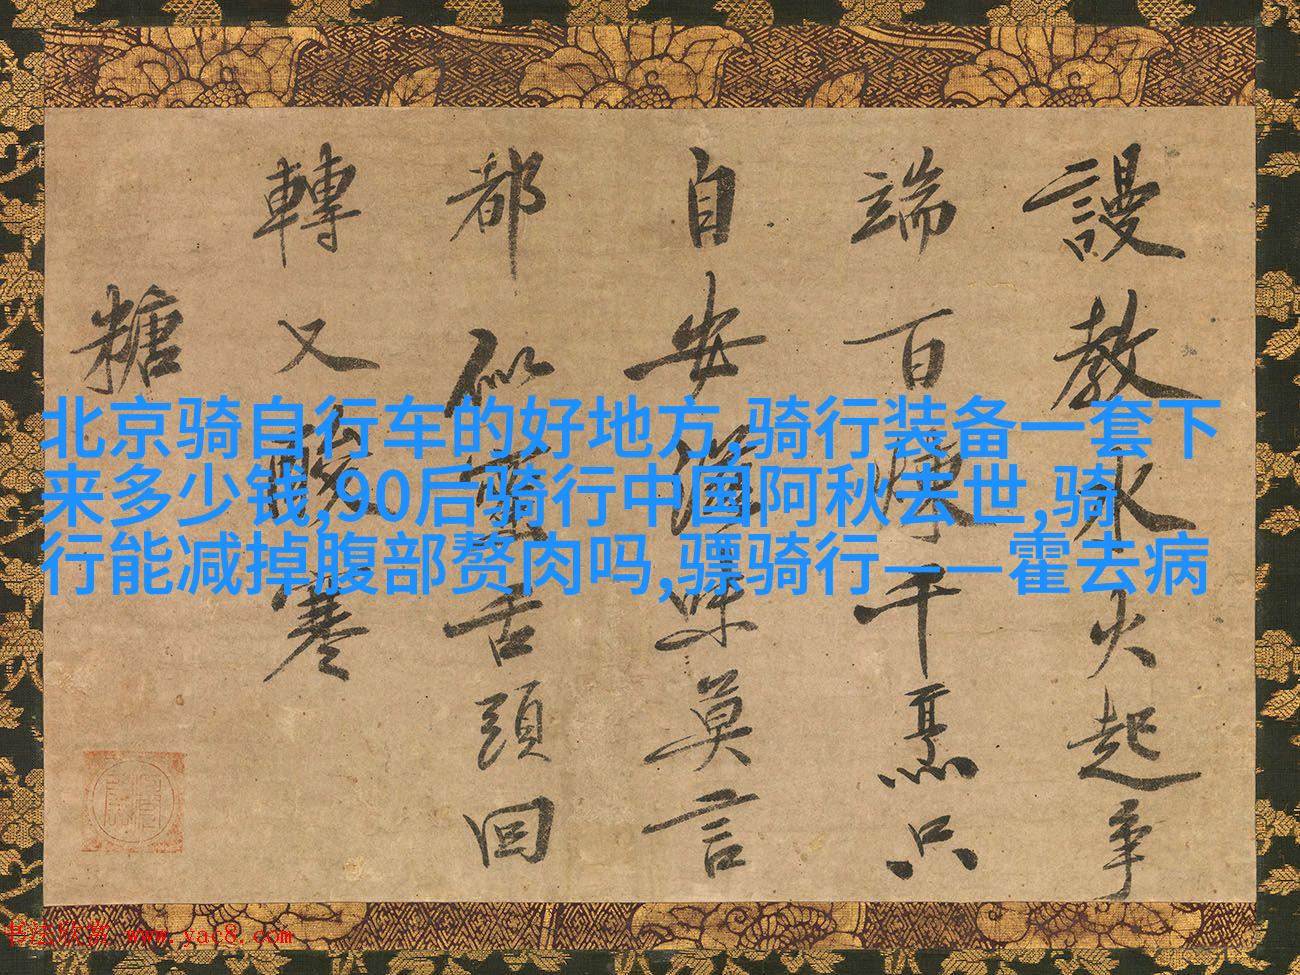 北京骑自行车的好地方,骑行装备一套下
来多少钱,90后骑行中国阿秋去世,骑
行能减掉腹部赘肉吗,骠骑行——霍去病
謾教水火起爭
端百煉千只
自安滋味莫言
都似蜜舌頭回
轉又酸寒
糖
书法欣赏 www.yac8.com